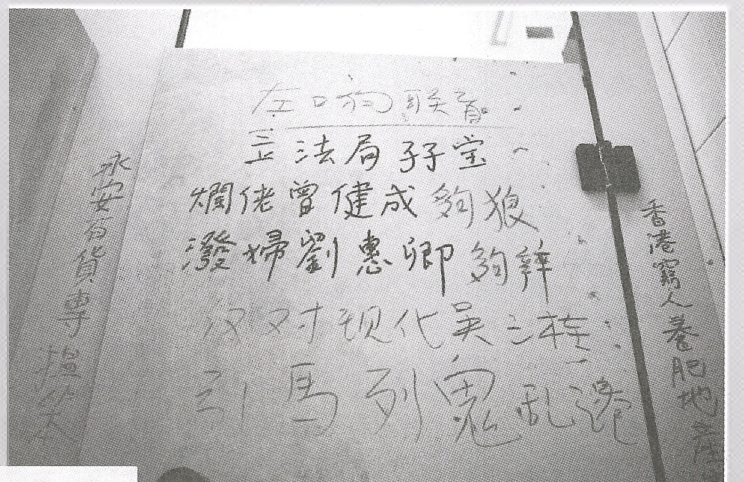 左口狗联盲
立法局孖宝
爛佬曾健成夠狼
潑婦劉惠卿夠辣
反对现化吴三桂
引馬列鬼乱港
永安百貨專搵笨
香港窮人養肥地產